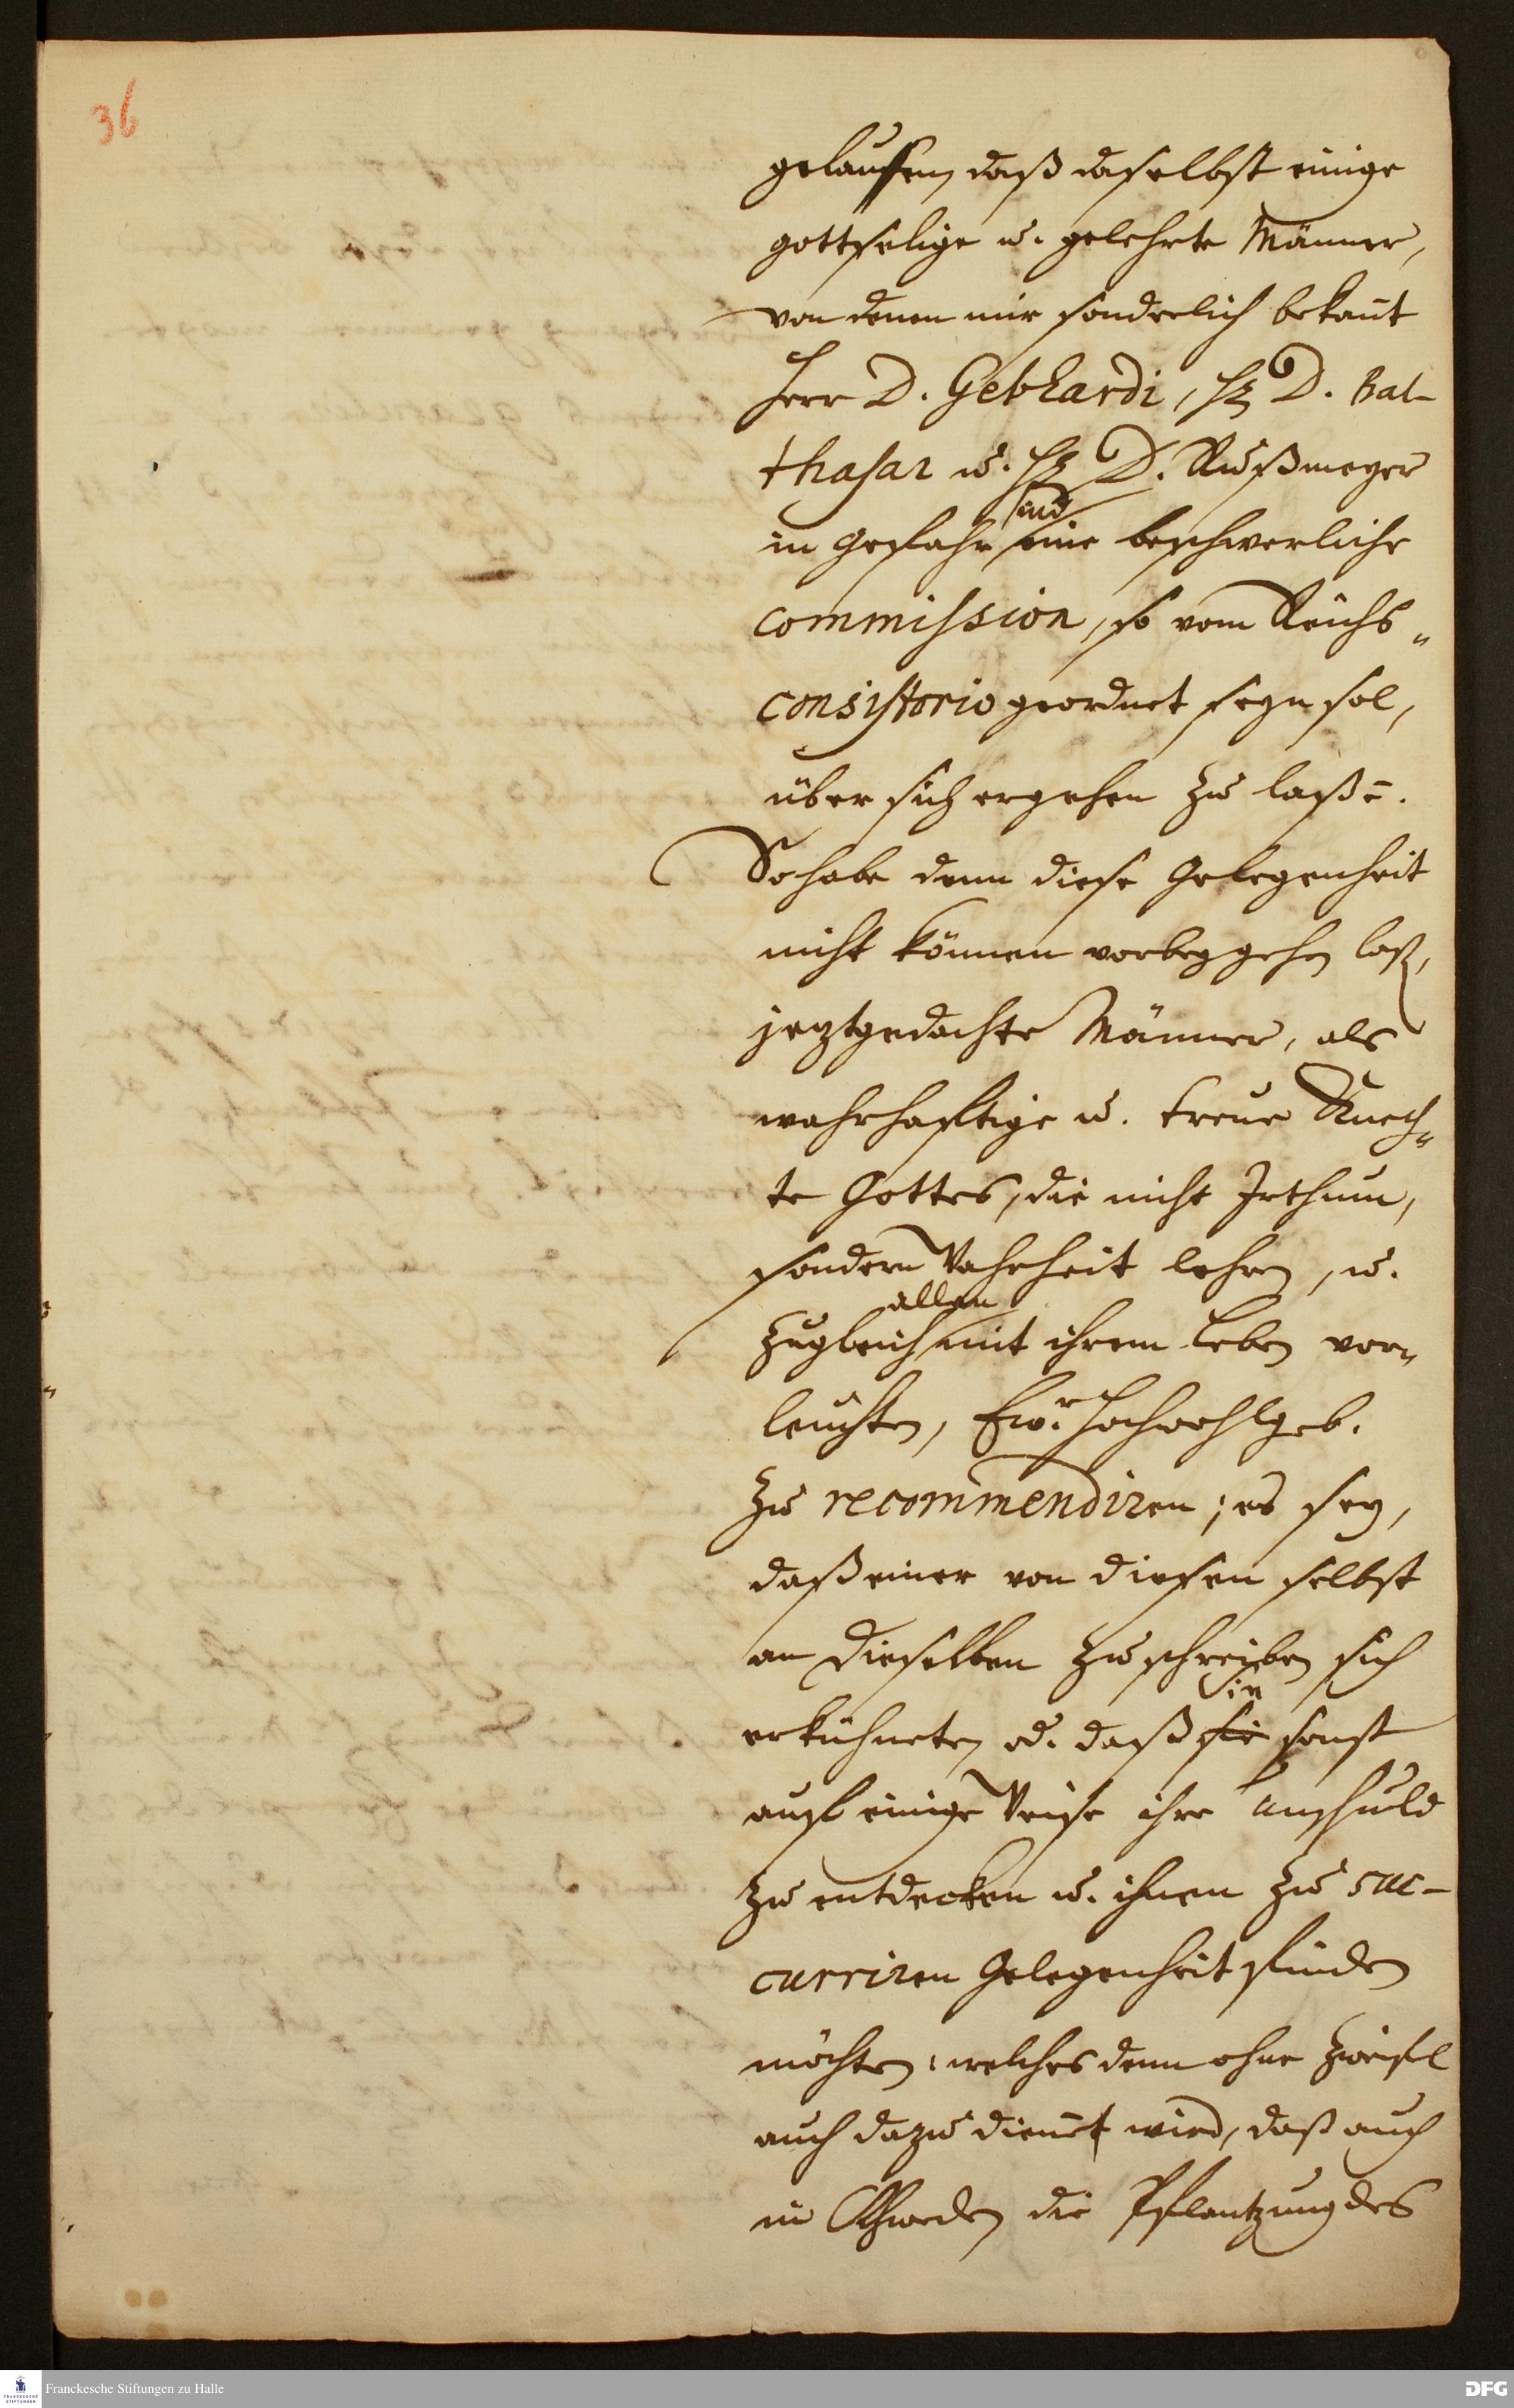 36
gelauffen, daß daselbst einige
gottselige u. gelehrte Männer,
von denen mir sonderlich bekant
Herr D. Gebhardi, H. D. Bal-
thasar u. H. D. Rußmeyer
in Gefahr sind eine beschwerliche
commission, so vom Reichs„
consistorio geordnet seyn sol,
über sich ergehen zu laßē.
So habe denn diese Gelegenheit
nicht können vorbeygehen laß,
jeztgedachte Männer, als
wahrhafftige u. treue Knech„
te Gottes, die nicht Irthum,
sondern Wahrheit lehren, u.
zugleich allen mit ihrem Leben vor„
leuchten, Ew. Hochwohlgeb.
zu recommendiren; es sey,
daß einer von diesen selbst
an Dieselben zu schreiben sich
erkühneten, od. daß sie sie sonst
auf einige Weise ihre Unschuld
zu entdecken u. ihnen zu suc-
curriren Gelegenheit finden
möchten: welches denn ohne Zweifel
auch dazu dienet wird, daß auch
in Schweden die Pflantzung des
Franckesche Stiftungen zu Halle
FRANCKESCHE
STIFTUNGEN
DFG